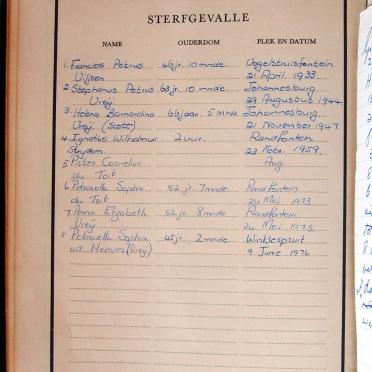 STERFGEVALLE
NAME OUDERDOM PLEK EN DATUM
1. Francois Petrus 46 jr. 10 mnde. Vogelstruisfontein
Viljoen 21 April 1933.
2. Stephanus Petrus 63 jr. 10 mnde. Johannesburg
Vreÿ 29 Augustus 1944.
3. Helena Bernardina 66 jaar 5 mnde Johannesburg
Vreÿ. (Scott) 21 November 1947.
4. Ignatius Wilhelmus 2 uur. Randfontein
Strydom 22 Febr. 1959.
5 Pieter Cornelius Aug.
du Toit
6 Petronella Sophia 82 jr 7 mnde Randfontein
du Toit 24 Mei 1973
7. Anna Elizabeth 62 jr 8 mnde Randfontein
Vreÿ 24 Mei 1973.
8 Petronella Sophia 45 jr. 2 mnde. Winklespruit
vd. Heever (Vreÿ) 9 Junie 1976